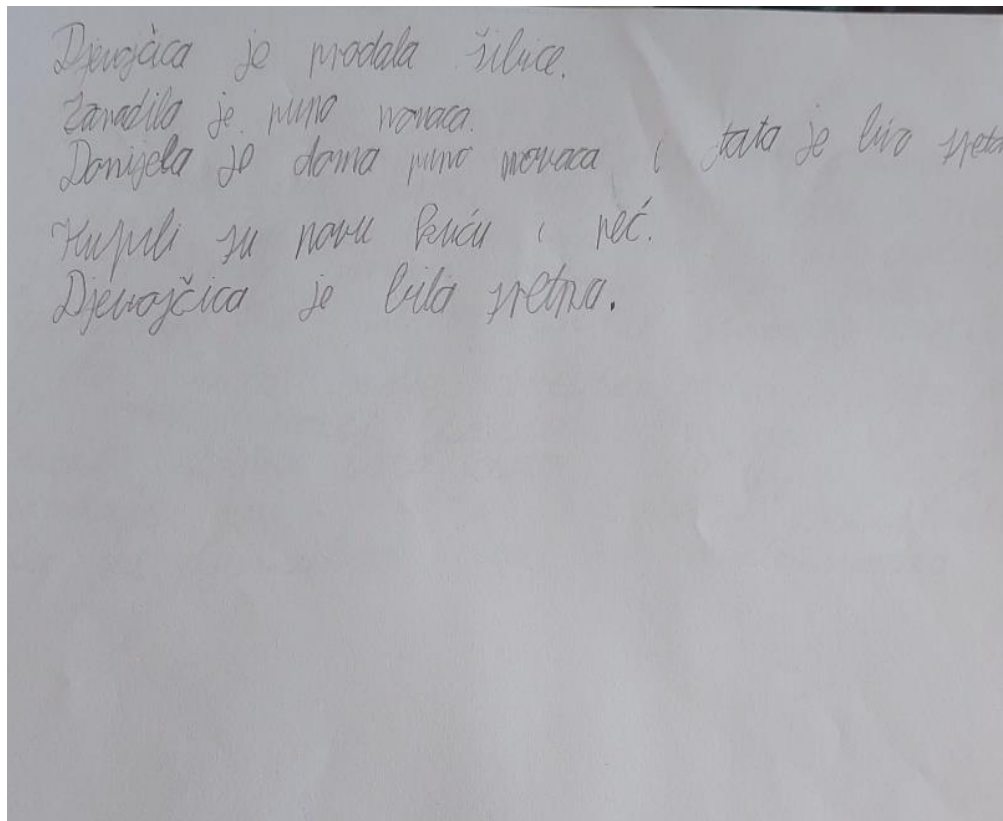 Djevojčica je prodala šibice.
Zaradila je puno novaca.
Donijela je doma puno novaca i tata je bio sreta
Kupili su novu kuću i peć.
Djevojčica je bila sretna.